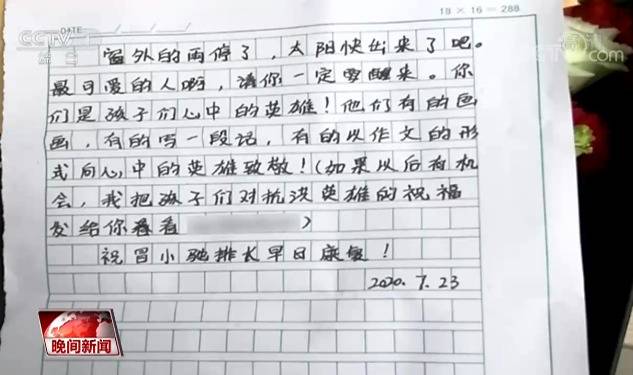 18 × 16 = 288
DATE
CCTV 1
综合
央视网
窗外的雨停了，太阳快出来了吧。
最可爱的人啊，请你一定要醒来。你
们是孩子们心中的英雄！他们有的画
画，有的写一段话，有的以作文的形
式向心中的英雄致敬！（如果以后有机
会，我把孩子们对抗洪英雄的祝福
发给你看看）
祝冒小驰排长早日康复！
2020.7.23
晚间新闻